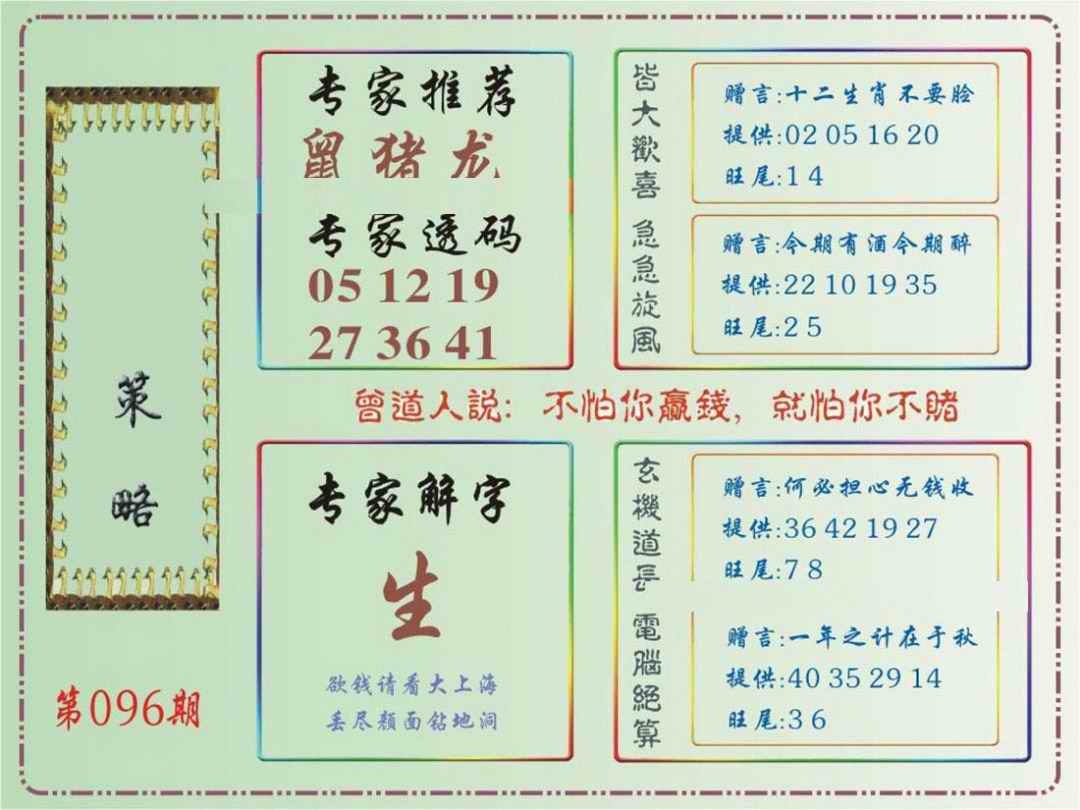 策略
第096期
专家推荐
鼠猪龙
专家透码
05 12 19
27 36 41
皆大歡喜
赠言:十二生肖不要脸
提供:02 05 16 20
旺尾:1 4
急急旋風
赠言:今期有酒今期醉
提供:22 10 19 35
旺尾:2 5
曾道人説: 不怕你贏錢, 就怕你不賭
专家解字
生
欲钱请看大上海
丢尽颜面钻地洞
玄機道長
赠言:何必担心无钱收
提供:36 42 19 27
旺尾:7 8
電腦絕算
赠言:一年之计在于秋
提供:40 35 29 14
旺尾:3 6